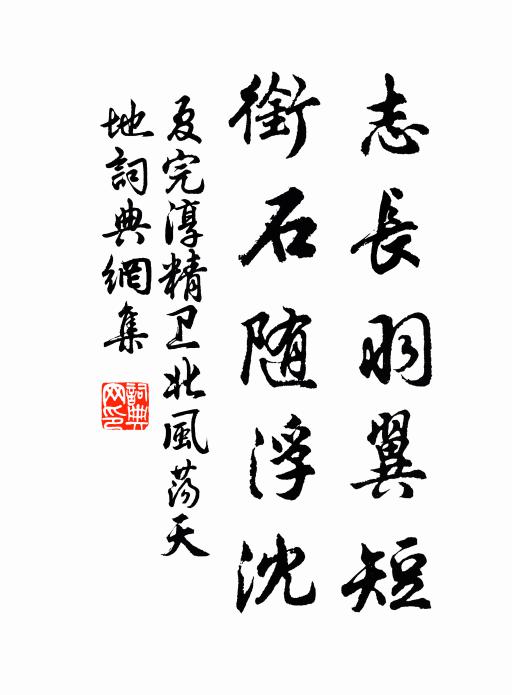 志長羽翼短
銜石随浮沈
夏完淳精卫北風荡天
地詞典網集
詞典
网印